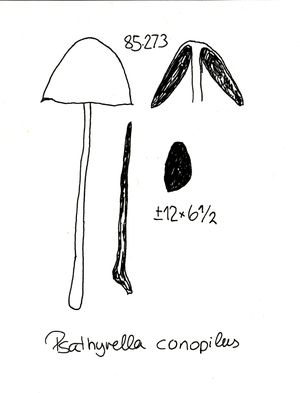 85-273
±12×6½
Psathyrella conopilus